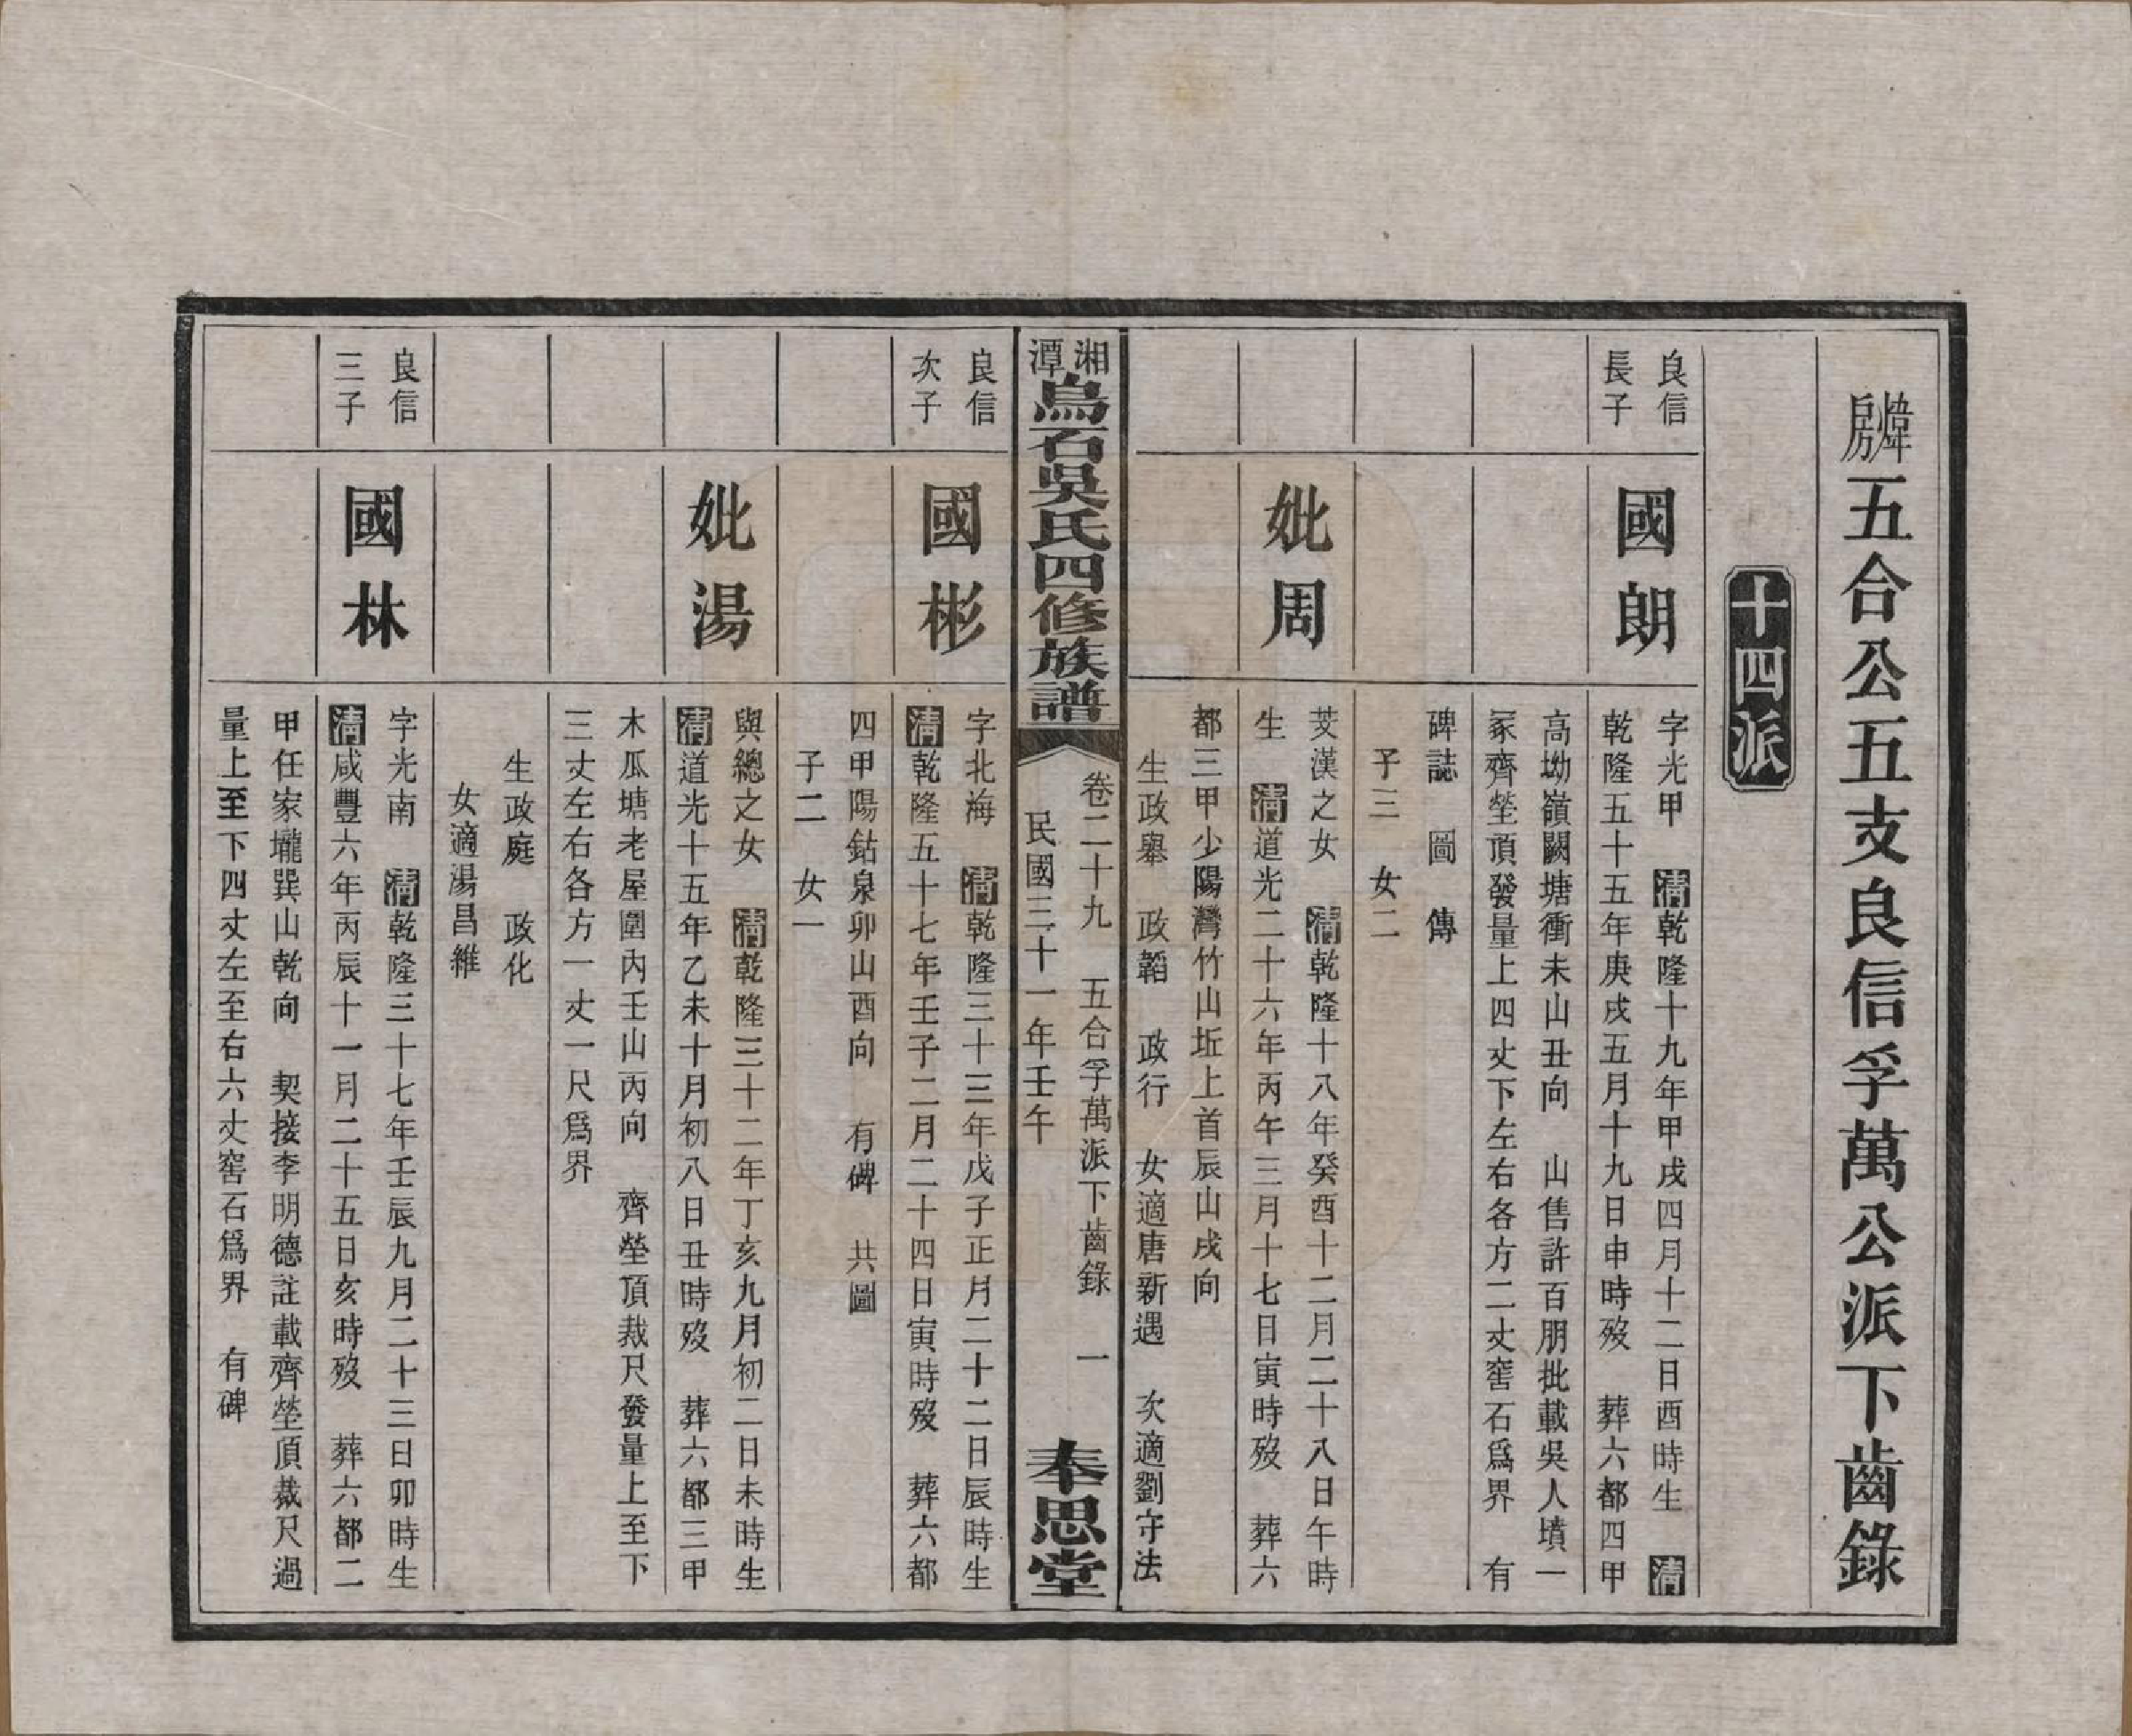 煒房五合公五支良信孚萬公派下齒錄
十四派
良信
長子
國朗
字光甲 清乾隆十九年甲戌四月十二日酉時生 清
乾隆五十五年庚戌五月十九日申時歿 葬六都四甲
高坳嶺闕塘衝未山丑向 山售許百朋批載吳人墳一
冢齊塋頂發量上四丈下左右各方二丈窖石爲界 有
碑誌 圖 傳
子三 女二
妣周
芰漢之女 清乾隆十八年癸酉十二月二十八日午時
生 清道光二十六年丙午三月十七日寅時歿 葬六
都三甲少陽灣竹山坵上首辰山戌向
生政舉 政韜 政行 女適唐新遇 次適劉守法
湘潭烏石吳氏四修族譜
卷二十九 五合孚萬派下齒錄 一
民國三十一年壬午
奉思堂
良信
次子
國彬
字北海 清乾隆三十三年戊子正月二十二日辰時生
清乾隆五十七年壬子二月二十四日寅時歿 葬六都
四甲陽鈷泉卯山酉向 有碑 共圖
子二 女一
妣湯
與總之女 清乾隆三十二年丁亥九月初二日未時生
清道光十五年乙未十月初八日丑時歿 葬六都三甲
木瓜塘老屋圍內壬山丙向 齊塋頂裁尺發量上至下
三丈左右各方一丈一尺爲界
生政庭 政化
女適湯昌維
良信
三子
國林
字光南 清乾隆三十七年壬辰九月二十三日卯時生
清咸豐六年丙辰十一月二十五日亥時歿 葬六都二
甲任家壠巽山乾向 契接李明德註載齊塋頂裁尺過
量上至下四丈左至右六丈窖石爲界 有碑